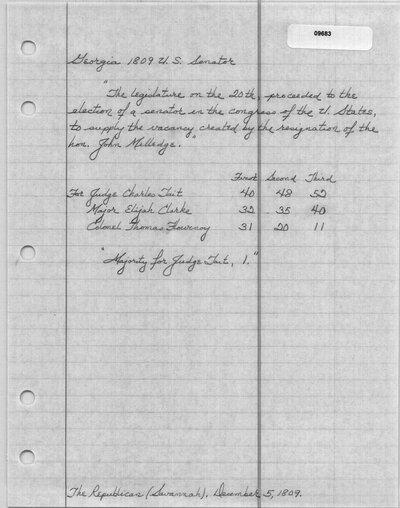 09683
Georgia 1809 U.S. Senator
"The legislature on the 20th, proceeded to the
election of a senator in the congress of the U. States,
to supply the vacancy created by the resignation of the
hon. John Milledge."
First Second Third
For Judge Charles Tait 40 48 52
Major Elijah Clarke 32 35 40
Colonel Thomas Flournoy 31 20 11
"Majority for Judge Tait, 1."
The Republican (Savannah). December 5, 1809.